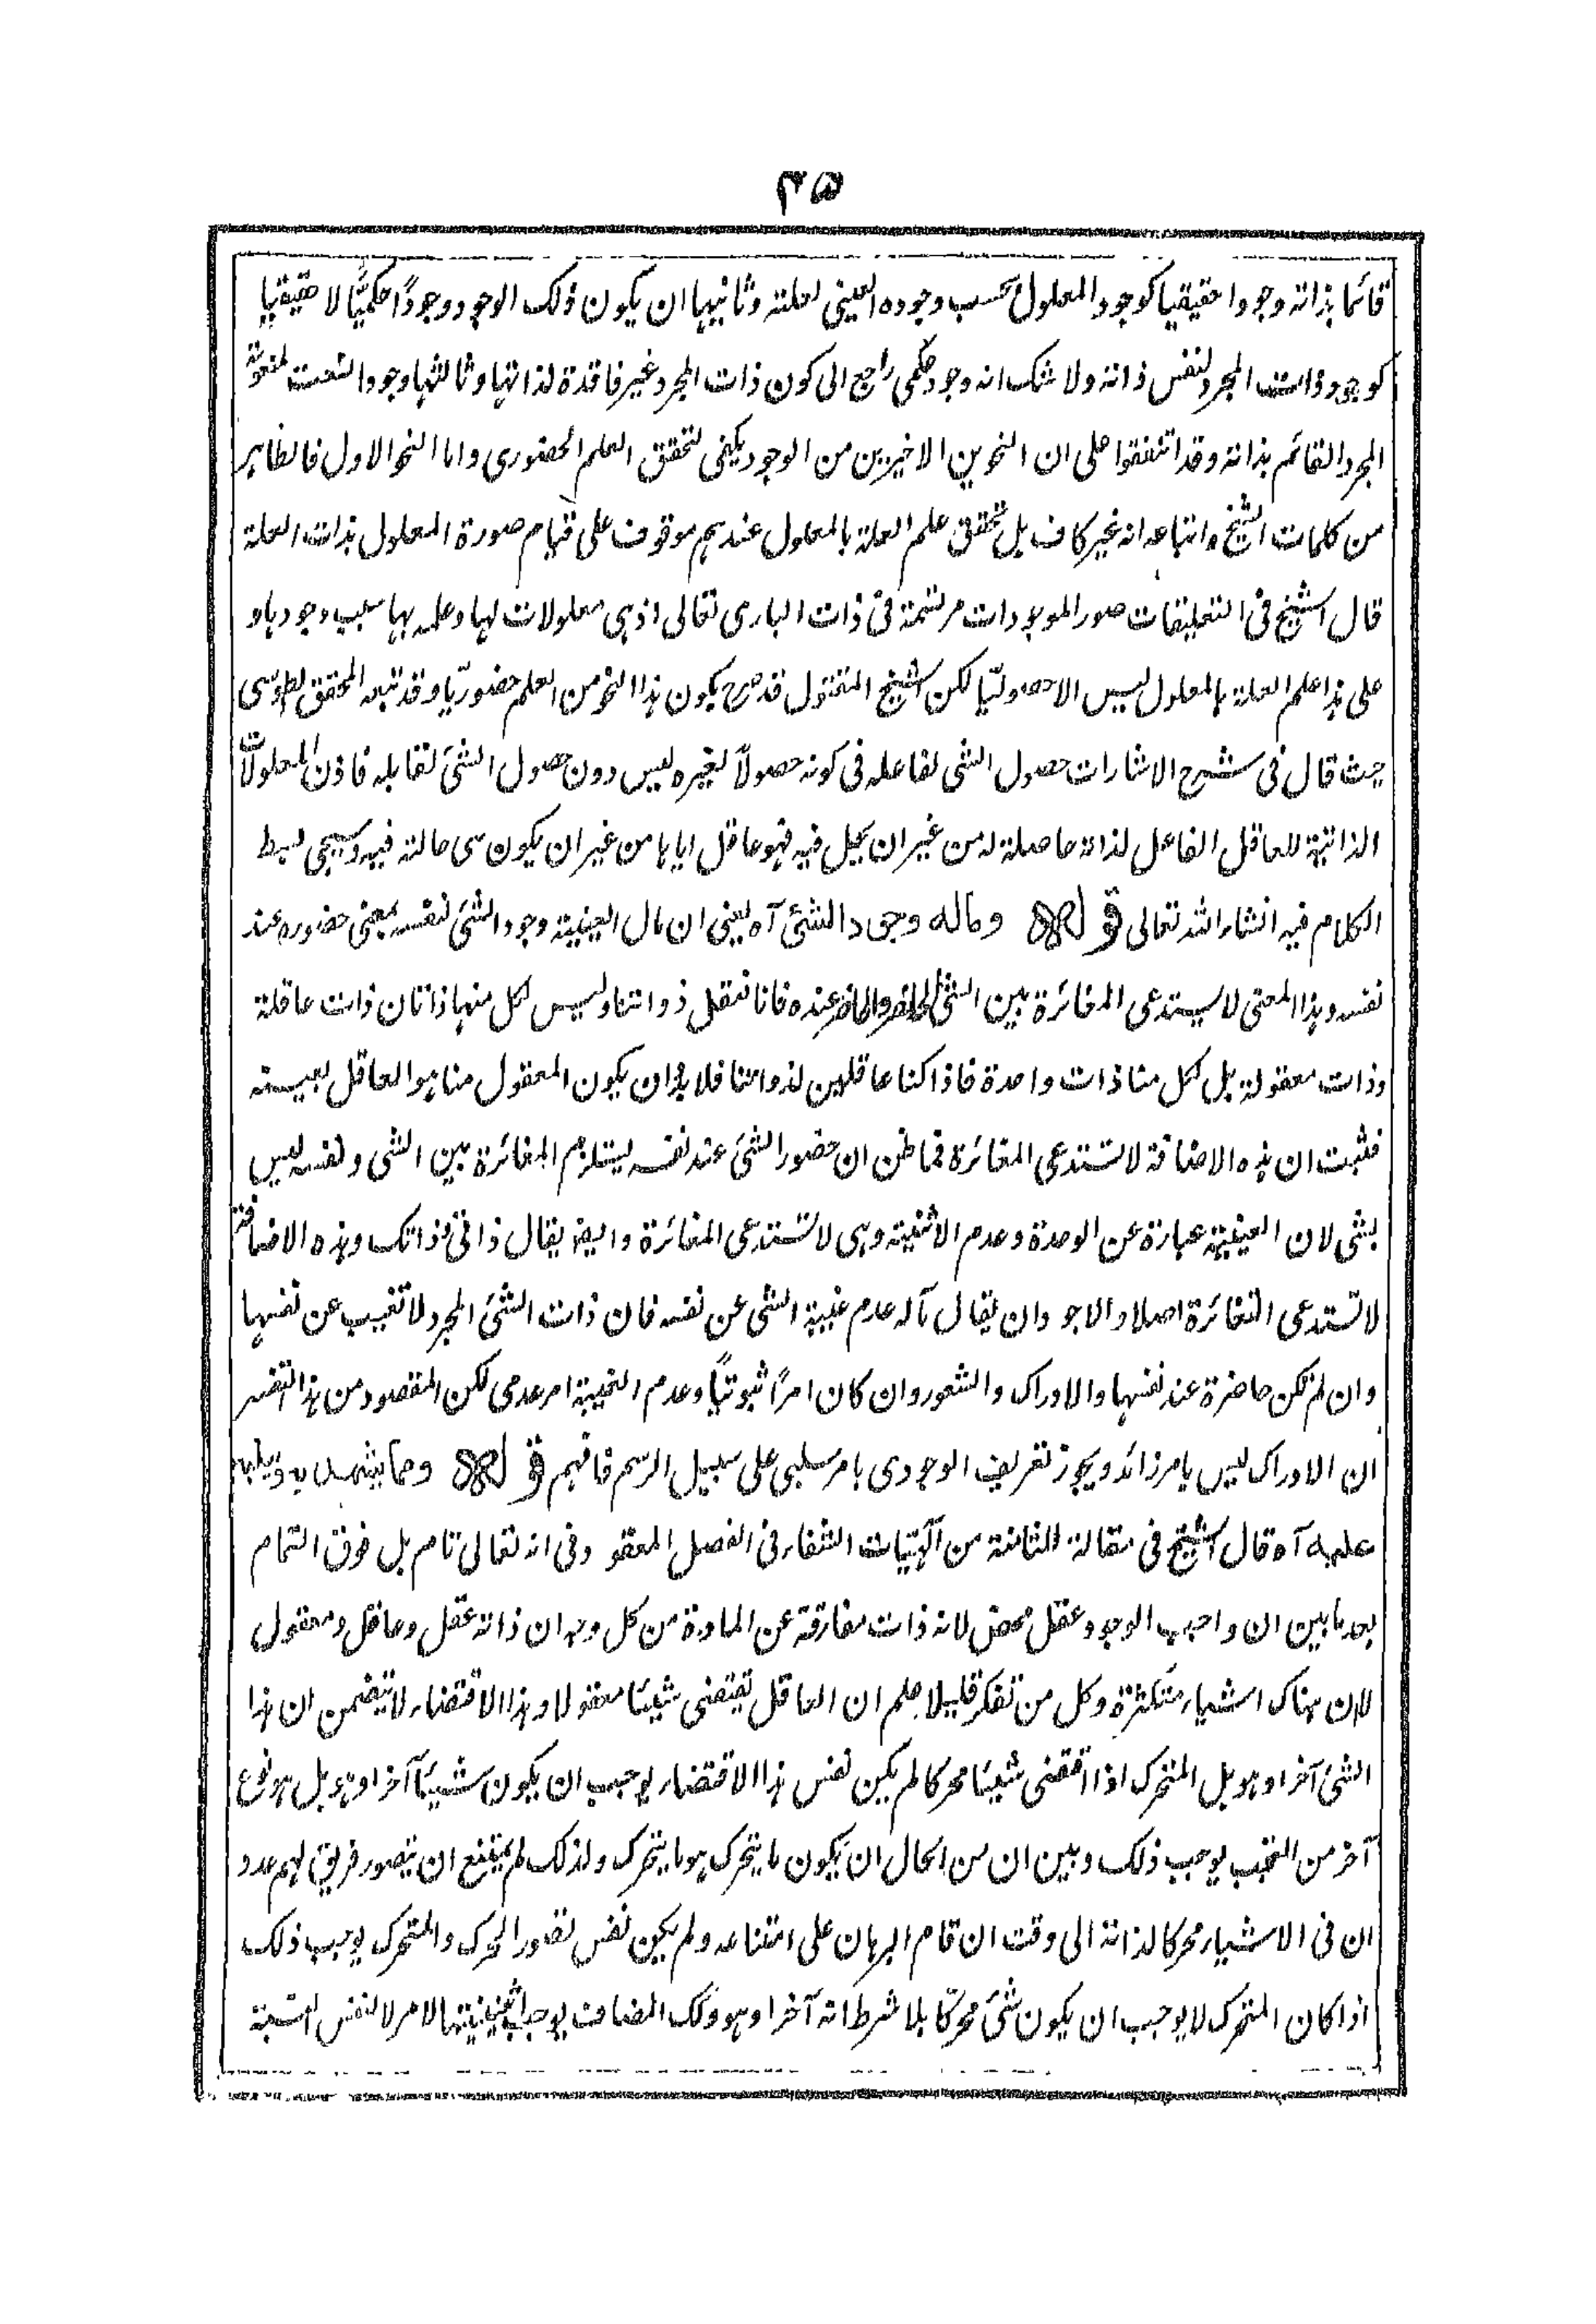 ٣٥
قائما بذاته وجودا حقيقيا كوجود المعلول بحسب وجوده العيني لعلته وثانيها ان يكون ذلك الوجود وجودًا حكميًّا لا حقيقيا
كوجود ذات المجرد لنفس ذاته ولا شك انه وجود حكمي راجع الى كون ذات المجرد غير فاقدة لذاتها وثالثها وجود النعت لمنعوته
المجرد القائم بذاته وقد اتفقوا على ان النحوين الاخيرين من الوجود يكفي لتحقق العلم الحضوري واما النحو الاول فالظاهر
من كلمات الشيخ واتباعه انه غير كاف بل تحقق علم العلة بالمعلول عندهم موقوف على قيام صورة المعلول بذات العلة
قال الشيخ في التعليقات صور الموجودات مرتسمة في ذات الباري تعالى اذ هي معلولات لها وعلمه بها سبب وجودها و
على هذا علم العلة بالمعلول ليس الا حصوليّا لكن الشيخ المقتول قد صرح بكون هذا النحو من العلم حضوريّا وقد تبعه المحقق الطوسي
حيث قال في شرح الاشارات حصول الشئ لفاعله في كونه حصولاً لغيره ليس دون حصول الشئ لقابله فاذن المعلولات
الذاتية للعاقل الفاعل لذاته حاصلة له من غير ان يحل فيه فهو عاقل اياها من غير ان يكون هي حالة فيه وسيجئ بسط
الكلام فيه انشاء الله تعالى قوله وماله وجود الشئ آه يعني ان مال العينية وجود الشئ لنفسه بمعنى حضوره عند
نفسه وهذا المعنى لا يستدعي المغائرة بين الشئ الحاضر والحاضر عنده فانا نعقل ذواتنا وليس لكل منها ذاتان ذات عاقلة
وذات معقولة بل لكل منا ذات واحدة فاذا كنا عاقلين لذواتنا فلا بد ان يكون المعقول منا هو العاقل بعينه
فثبت ان هذه الاضافة لا تستدعي المغائرة فما ظن ان حضور الشئ عند نفسه يستلزم المغائرة بين الشئ ونفسه ليس
بشئ لان العينية عبارة عن الوحدة وعدم الاثنينية وهي لا تستدعي المغائرة وايضا يقال ذاتي وذاتك وهذه الاضافة
لا تستدعي المغائرة اصلا والاجود ان يقال مآله عدم غيبة الشئ عن نفسه فان ذات الشئ المجرد لا تغيب عن نفسها
وان لم تكن حاضرة عند نفسها والادراك والشعور وان كان امرًا ثبوتيًا وعدم الغيبة امر عدمي لكن المقصود من هذا التفسير
ان الادراك ليس بامر زائد ويجوز تعريف الوجودي بامر سلبي على سبيل الرسم فافهم قوله ومما يشهد به وينبه
عليه آه قال الشيخ في مقالة الثامنة من آلهيّات الشفاء في الفصل المعقود في انه تعالى تام بل فوق التمام
بعد ما بين ان واجب الوجود عقل محض لانه ذات مفارقة عن المادة من كل وجه ان ذاته عقل وعاقل ومعقول
لا ان هناك اشياء متكثرة وكل من تفكر قليلا علم ان العاقل يقتضي شيئا معقولا وهذا الاقتضاء لا يتضمن ان هذا
الشئ آخر او هو بل المتحرك اذا اقتضى شيئا محركا لم يكن نفس هذا الاقتضاء يوجب ان يكون شيئا آخر او هو بل هو نوع
آخر من البحث يوجب ذلك وبين ان من المحال ان يكون ما يتحرك هو ما يتحرك ولذلك لم يمتنع ان يتصور فريق لهم عدد
ان في الاشياء محركا لذاته الى وقت ان قام البرهان على امتناعه ولم يكن نفس تصور المحرك والمتحرك يوجب ذلك
اذا كان المتحرك لا يوجب ان يكون شئ محركًا بلا شرط انه آخر او هو وكذلك المضافات يوجب اثنينيتها لامر لا لنفس النسبة